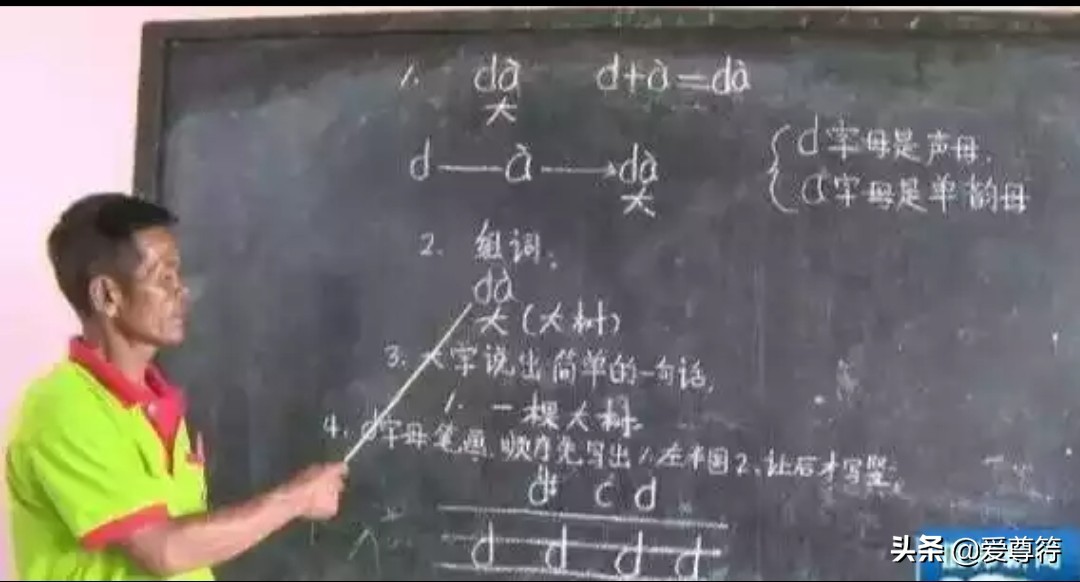 1. dà d+à=dà
大
d—à→dà
大
d字母是声母.
a字母是单韵母
2. 组词:
dà
大(大树)
3. 大字说出简单的一句话.
1. 一棵大树.
4. d字母笔画顺序先写出1.左半圆2.让后才写竖.
c d
d d d d
头条 @爱尊符